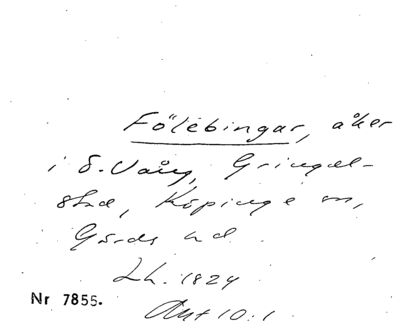 Fölebingar, åker
i S. Vång, Gringel-
stad, Köpinge sn,
Gärds hd.
Lh. 1824
Ant 10:1
Nr 7855.